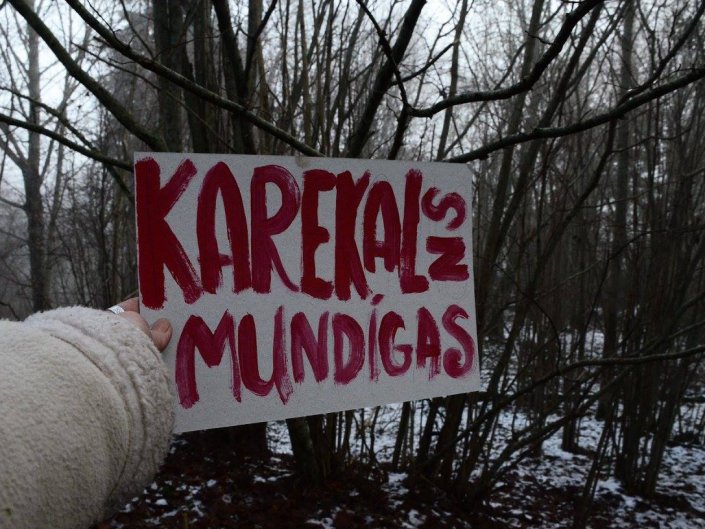 KAREKALNS
MUNDÍGAS